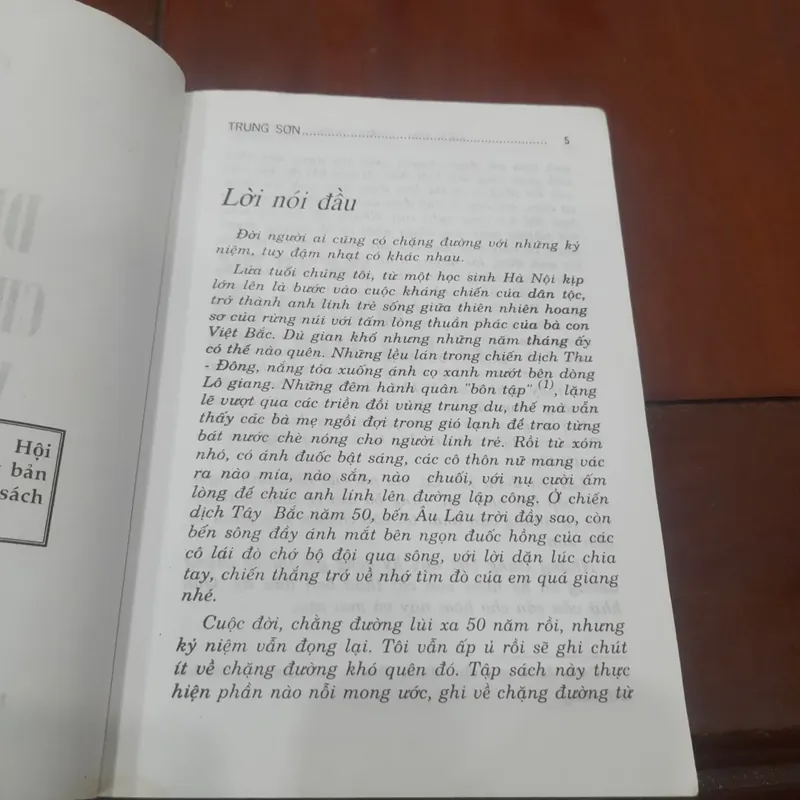 Hội
bản
sách
TRUNG SƠN.......................................................................... 5
Lời nói đầu
Đời người ai cũng có chặng đường với những kỷ
niệm, tuy đậm nhạt có khác nhau.
Lứa tuổi chúng tôi, từ một học sinh Hà Nội kịp
lớn lên là bước vào cuộc kháng chiến của dân tộc,
trở thành anh lính trẻ sống giữa thiên nhiên hoang
sơ của rừng núi với tấm lòng thuần phác của bà con
Việt Bắc. Dù gian khổ nhưng những năm tháng ấy
có thể nào quên. Những lều lán trong chiến dịch Thu
- Đông, nắng tỏa xuống ánh cọ xanh mướt bên dòng
Lô giang. Những đêm hành quân "bôn tập" (1), lặng
lẽ vượt qua các triền đồi vùng trung du, thế mà vẫn
thấy các bà mẹ ngồi đợi trong gió lạnh để trao từng
bát nước chè nóng cho người lính trẻ. Rồi từ xóm
nhỏ, có ánh đuốc bật sáng, các cô thôn nữ mang vác
ra nào mía, nào sắn, nào chuối, với nụ cười ấm
lòng để chúc anh lính lên đường lập công. Ở chiến
dịch Tây Bắc năm 50, bến Âu Lâu trời đầy sao, còn
bến sông đầy ánh mắt bên ngọn đuốc hồng của các
cô lái đò chở bộ đội qua sông, với lời dặn lúc chia
tay, chiến thắng trở về nhớ tìm đò của em quá giang
nhé.
Cuộc đời, chằng đường lùi xa 50 năm rồi, nhưng
kỷ niệm vẫn đọng lại. Tôi vẫn ấp ủ rồi sẽ ghi chút
ít về chặng đường khó quên đó. Tập sách này thực
hiện phần nào nỗi mong ước, ghi về chặng đường từ